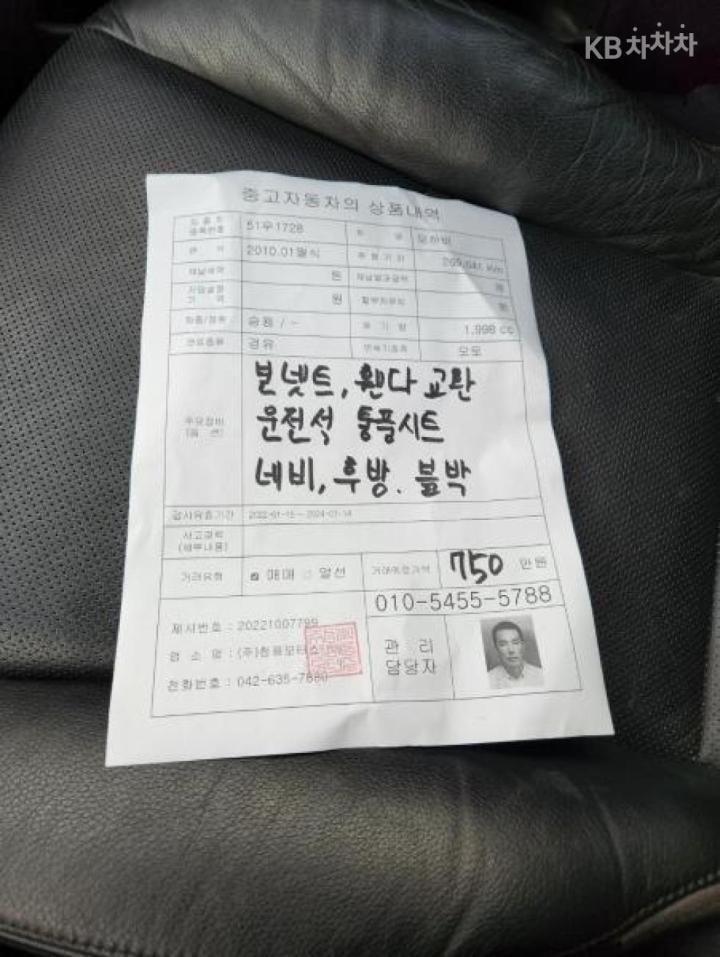 KB차차차
중고자동차의 상품내역
자동차
등록번호 51우1728 차 명 모하비
연 식 2010.01월식 주행거리 269,641 Km
원
원
차종/정원 승용 / - 배 기 량 1,998 cc
연료종류 경유 변속기종류 오토
주요장비
(옵 션)
본넷트, 휀다 교환
운전석 통풍시트
네비, 후방. 블박
검사유효기간 2022-01-15 ~ 2024-01-14
사고경력
(세부내용)
거래유형 매매 알선 750 만원
010-5455-5788
제시번호 : 20221007799
업 소 명 : (주)청룡모터스
전화번호 : 042-635-7880
관 리
담당자